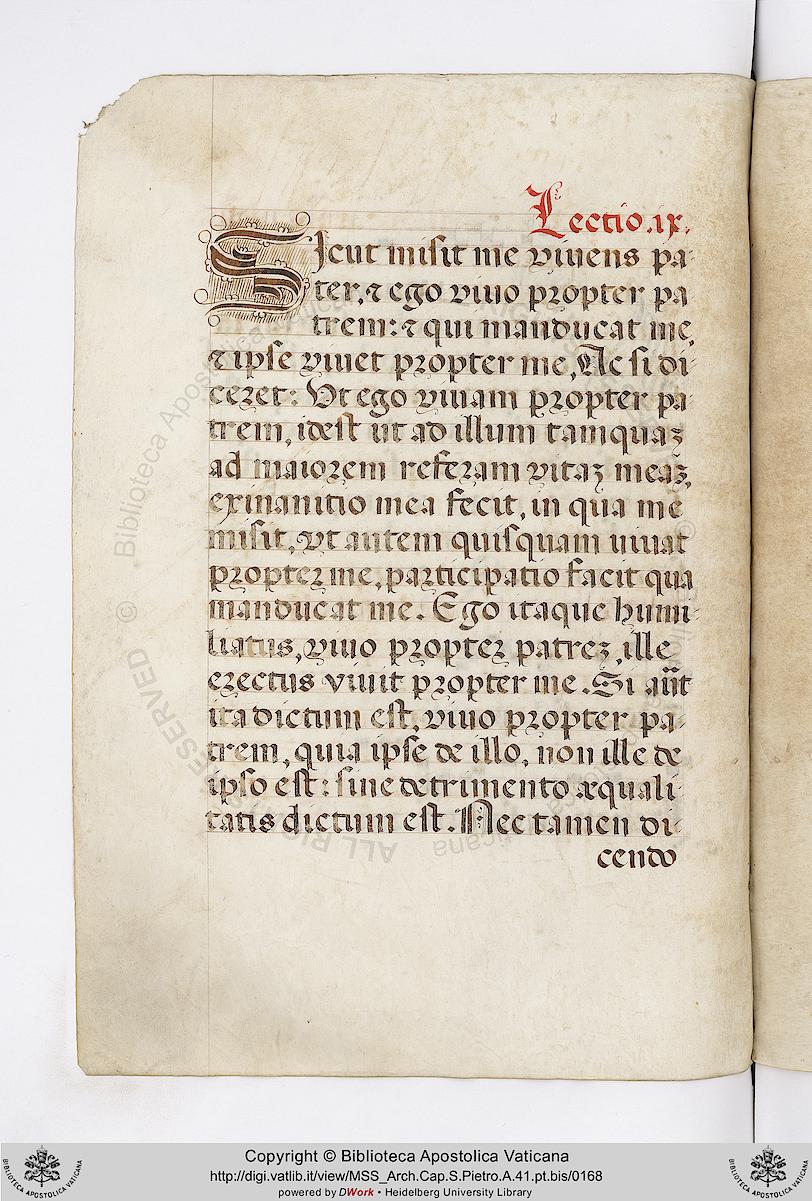 Lectio .ix.
Sicut misit me viuens pa-
ter, ⁊ ego viuo propter pa
trem: ⁊ qui manducat me,
⁊ ipse viuet propter me, Ac si di-
ceret: Vt ego viuam propter pa-
trem, idest ut ad illum tamquaꝫ
ad maiorem referam vitaꝫ meaꝫ,
exinanitio mea fecit, in qua me
misit, vt autem quisquam uiuat
propter me, participatio facit qua
manducat me. Ego itaque humi-
liatus, viuo propter patreꝫ, ille
erectus viuit propter me. Si aūt
ita dictum est, viuo propter pa-
trem, quia ipse de illo, non ille de
ipso est: sine detrimento æquali
tatis dictum est. Nec tamen di-
cendo
Copyright © Biblioteca Apostolica Vaticana
http://digi.vatlib.it/view/MSS_Arch.Cap.S.Pietro.A.41.pt.bis/0168
powered by DWork • Heidelberg University Library